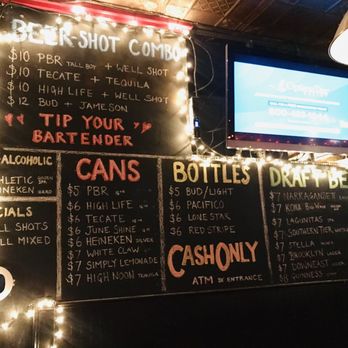 BEER-SHOT COMBO
$10 PBR TALL BOY + WELL SHOT
$10 TECATE + TEQUILA
$10 HIGH LIFE + WELL SHOT
$12 BUD + JAMESON
TIP YOUR
BARTENDER
ALCOHOLIC
HLETIC
EINEKEN
CIALS
LL SHOTS
LL MIXED
CANS
$5 PBR
$6 HIGH LIFE
$6 TECATE
$6 JUNE SHINE
$6 HEINEKEN SILVER
$7 WHITE CLAW
$7 SIMPLY LEMONADE
$7 HIGH NOON TEQUILA
BOTTLES
$5 BUD/LIGHT
$6 PACIFICO
$6 LONE STAR
$6 RED STRIPE
CASH ONLY
ATM BY ENTRANCE
DRAFT BE
$7 NARRAGANSETT
$7 KONA
$7 LAGUNITAS
$7 SOUTHERN TIER
$7 STELLA
$7 BROOKLYN LAGER
$7 DOWNEAST
$8 GUINNESS